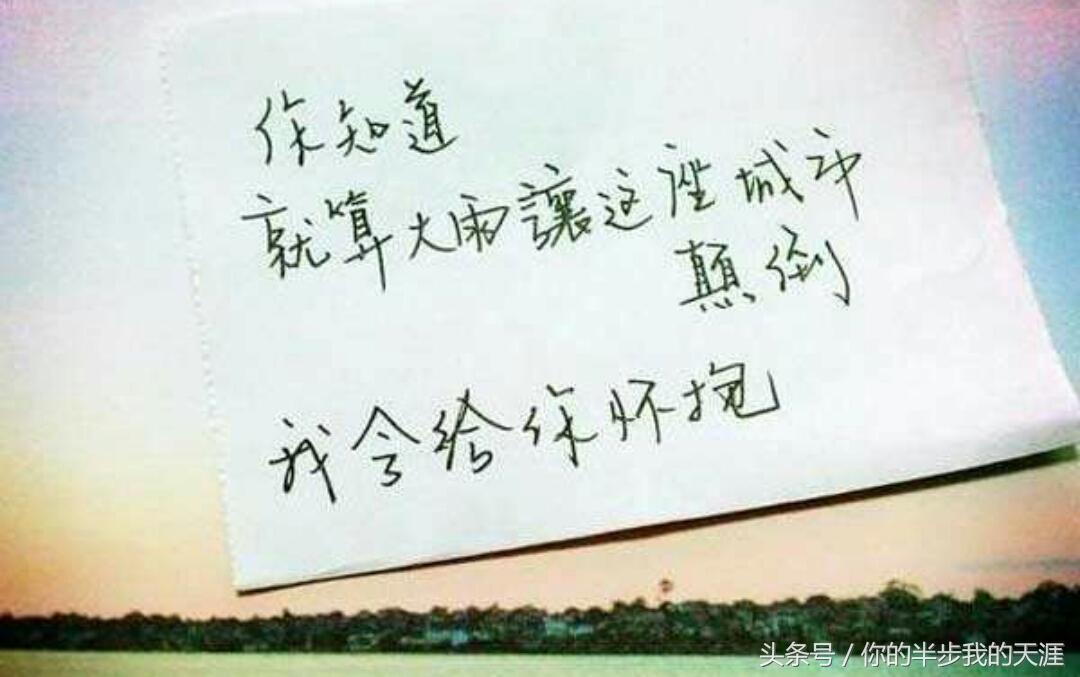 你知道
就算大雨讓这座城市
颠倒
我会给你怀抱
头条号 / 你的半步我的天涯